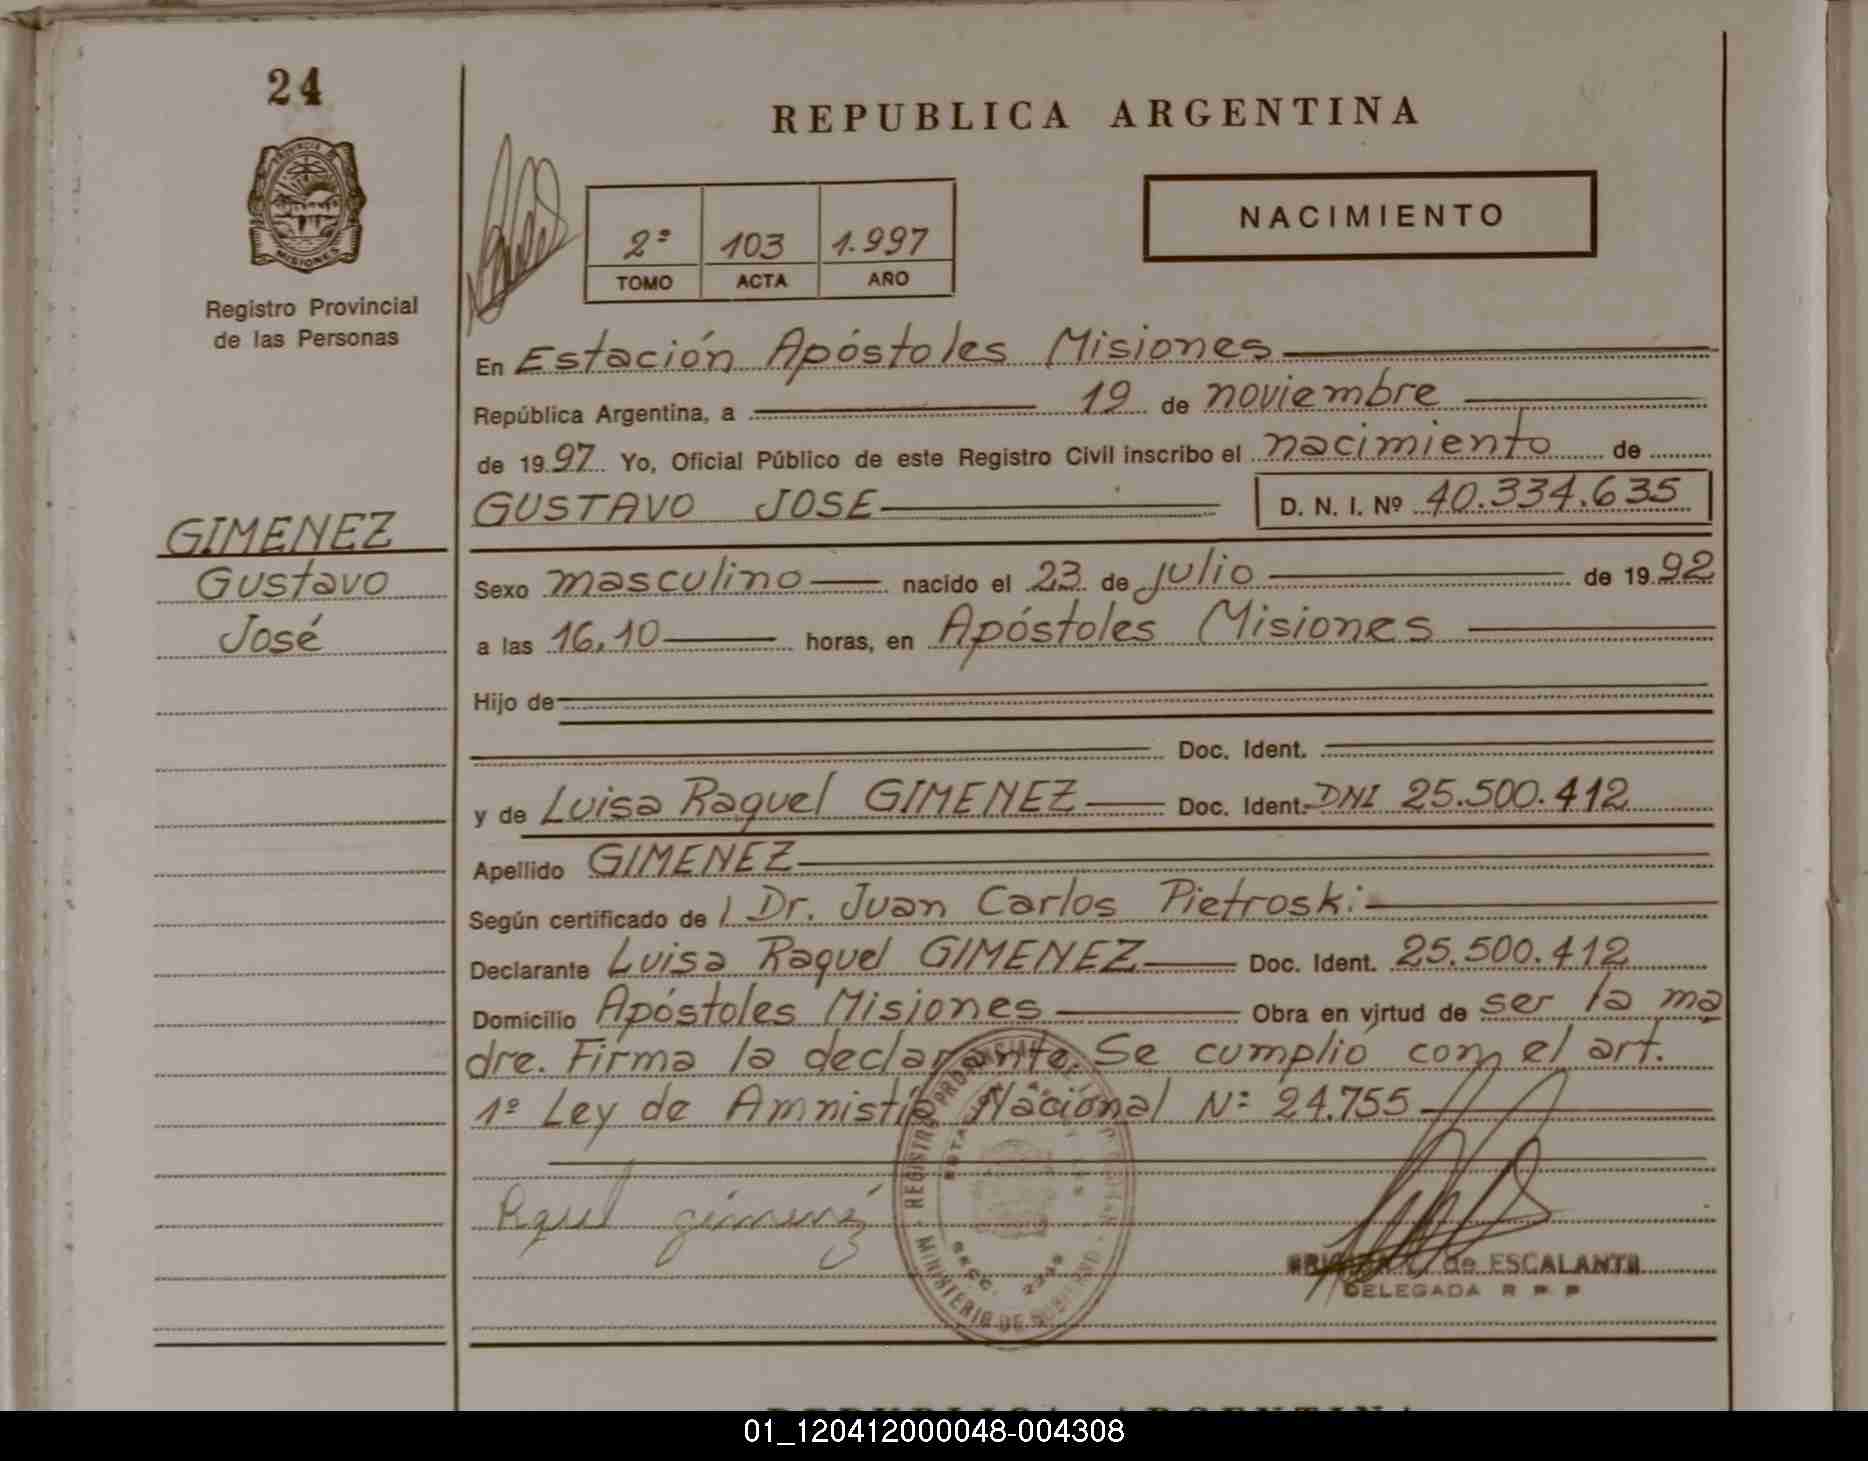 24
REPUBLICA ARGENTINA
PROVINCIA DE
MISIONES
Registro Provincial
de las Personas
2º 103 1.997
TOMO ACTA AÑO
NACIMIENTO
En Estación Apóstoles Misiones
República Argentina, a 19 de noviembre
de 1997 Yo, Oficial Público de este Registro Civil inscribo el nacimiento de
GUSTAVO JOSE D. N. I. Nº 40.334.635
GIMENEZ
Gustavo
José
Sexo masculino nacido el 23 de julio de 1992
a las 16,10 horas, en Apóstoles Misiones
Hijo de
Doc. Ident.
y de Luisa Raquel GIMENEZ Doc. Ident. DNI 25.500.412
Apellido GIMENEZ
Según certificado de l Dr. Juan Carlos Pietroski
Declarante Luisa Raquel GIMENEZ Doc. Ident. 25.500.412
Domicilio Apóstoles Misiones Obra en virtud de ser la ma
dre. Firma la declarante. Se cumplió con el art.
1º Ley de Amnistía Nacional Nº 24.755
Raquel gimenez
REGISTRO PROVINCIAL DE LAS PERSONAS
ESTACION APOSTOLES
SECC.
MINISTERIO DE GOBIERNO
de ESCALANTE
DELEGADA R P P
REPUBLICA ARGENTINA
01_120412000048-004308